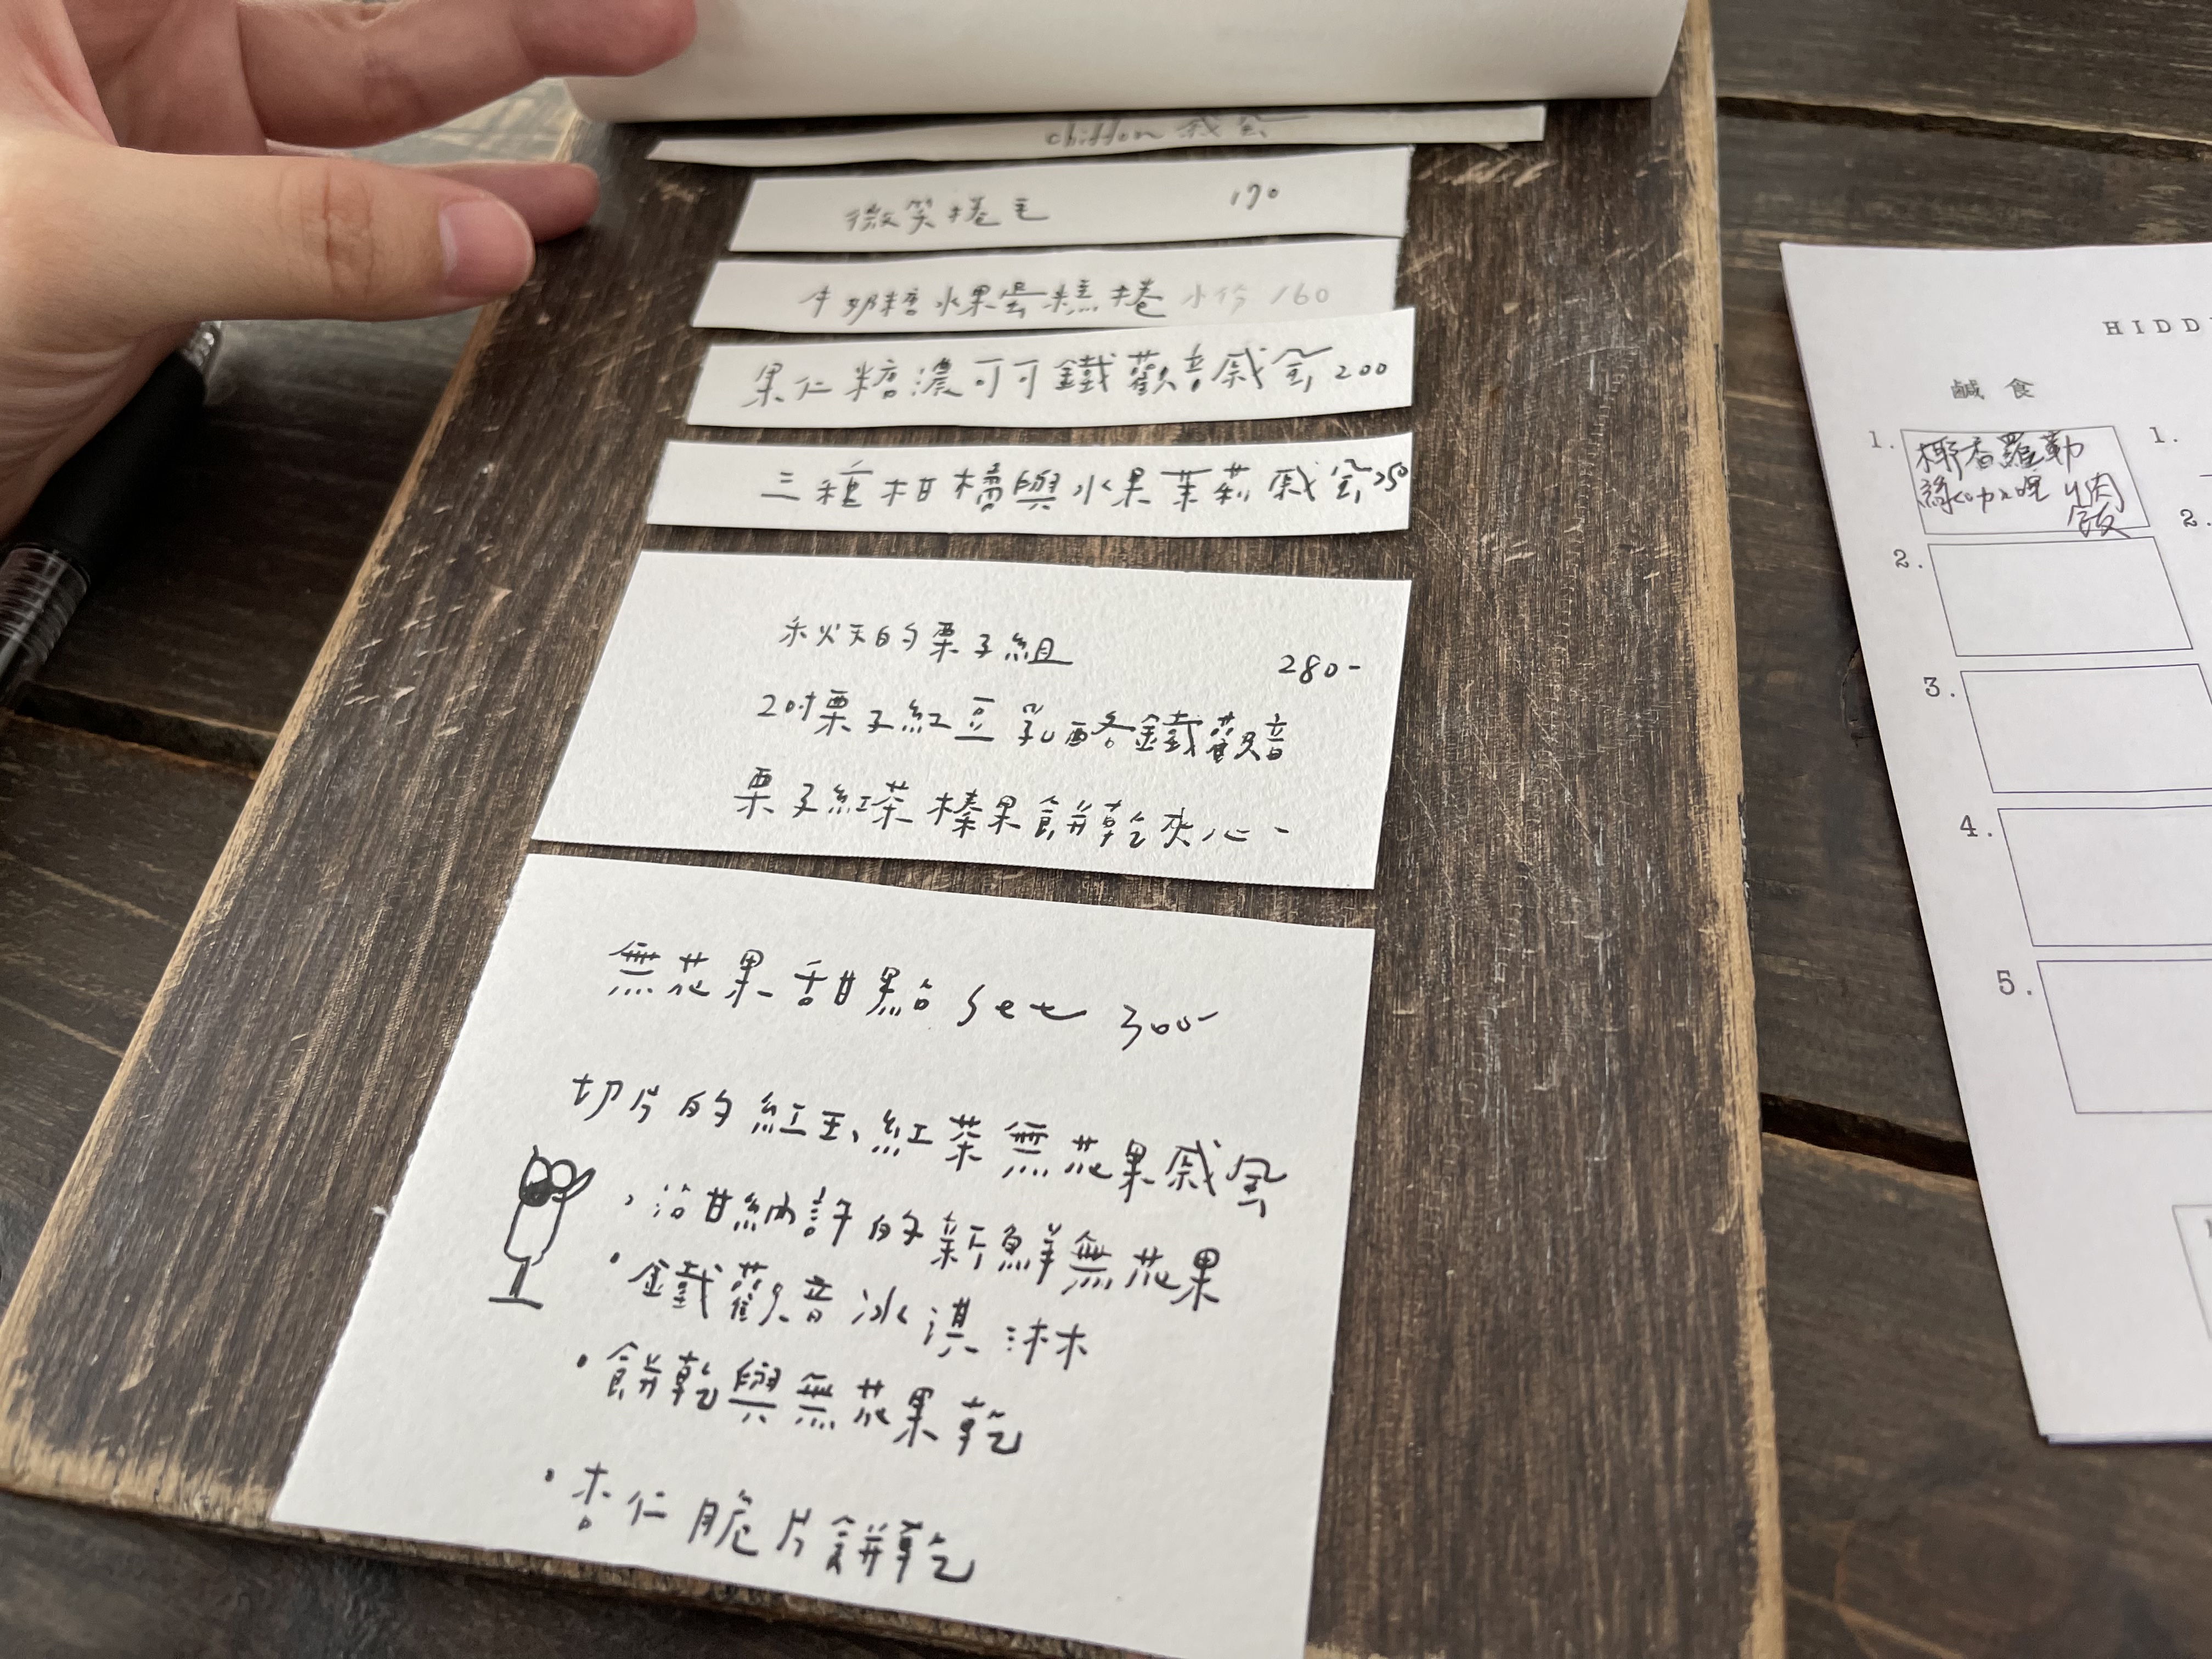 chiffon 戚風
微笑捲毛 170
牛奶糖水果蛋糕捲 小份 160
果仁糖濃可可鐵觀音戚風 200
三種柑橘與水果茉莉戚風 250
秋天的栗子組 280-
2吋栗子紅豆乳酪鐵觀音
栗子紅茶榛果餅乾夾心-
無花果甜點 set 300-
切片的紅玉紅茶無花果戚風
、沿甘納許的新鮮無花果
·鐵觀音冰淇淋
·餅乾與無花果乾
·杏仁脆片餅乾
HIDD
鹹食
1. 椰香羅勒
綠咖哩 肉
飯
2.
3.
4.
5.
1.
2.